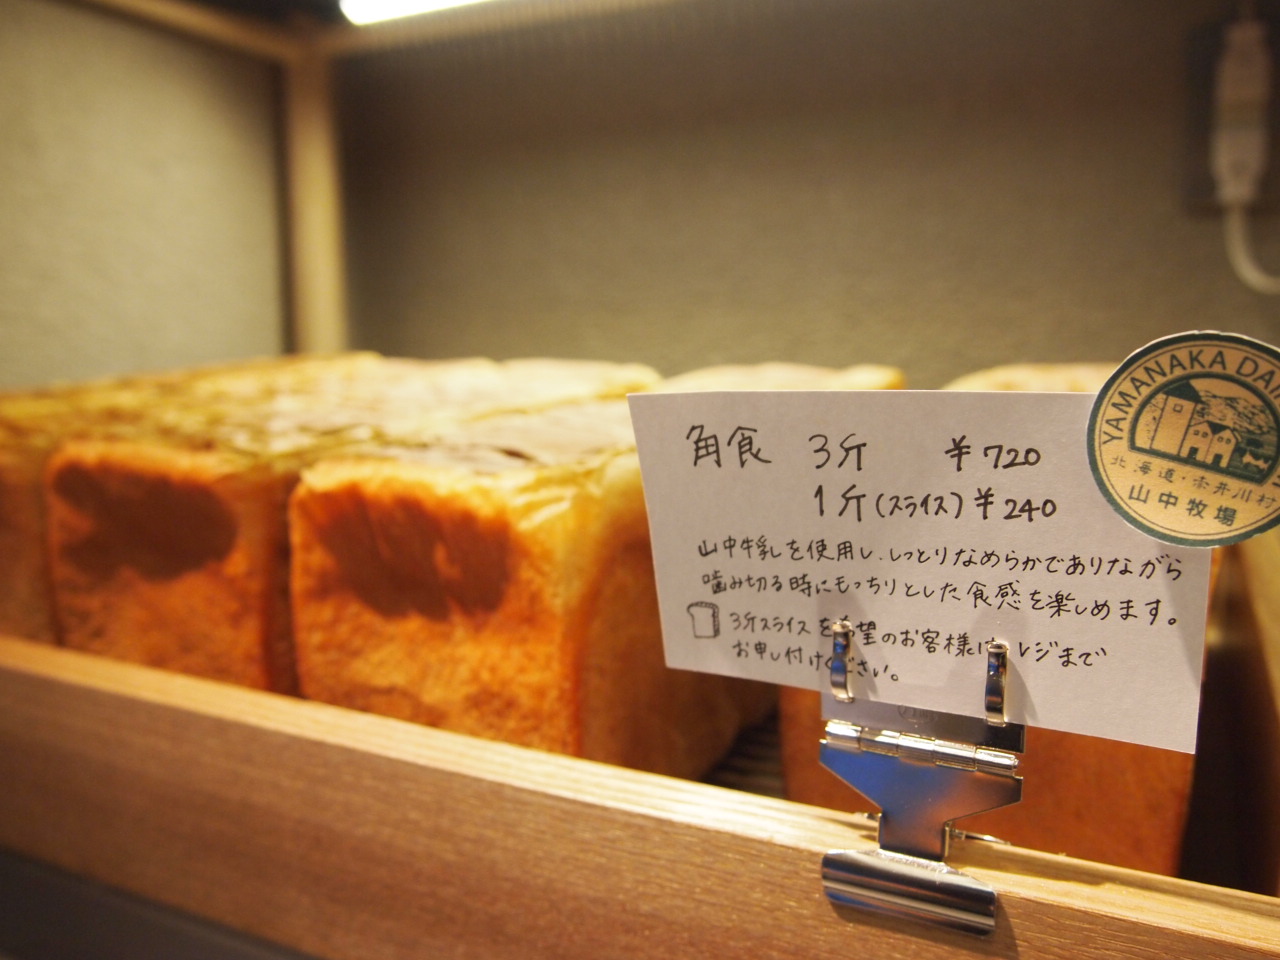 角食 3斤 ¥720
1斤(スライス) ¥240
山中牛乳を使用し、しっとりなめらかでありながら
噛み切る時にもっちりとした食感を楽しめます。
3斤スライスを希望のお客様は レジまで
お申し付けください。
YAMANAKA DAI
北海道・赤井川村
山中牧場